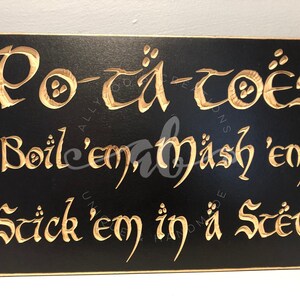 Po-tä-toes
Boil 'em, Mash 'em
Stick 'em in ä Stew